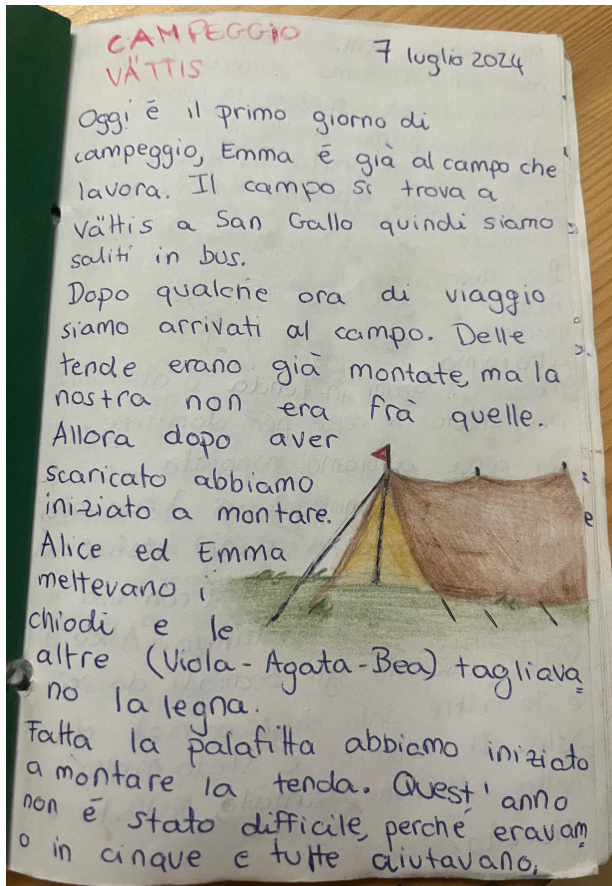 CAMPEGGIO
VÄTTIS
7 luglio 2024
Oggi è il primo giorno di
campeggio, Emma è già al campo che
lavora. Il campo si trova a
Vättis a San Gallo quindi siamo
saliti in bus.
Dopo qualche ora di viaggio
siamo arrivati al campo. Delle
tende erano già montate, ma la
nostra non era fra quelle.
Allora dopo aver
scaricato abbiamo
iniziato a montare.
Alice ed Emma
mettevano i
chiodi e le
altre (Viola-Agata-Bea) tagliava=
no la legna.
Fatta la palafitta abbiamo iniziato
a montare la tenda. Quest'anno
non è stato difficile, perché eravam
o in cinque e tutte aiutavano.